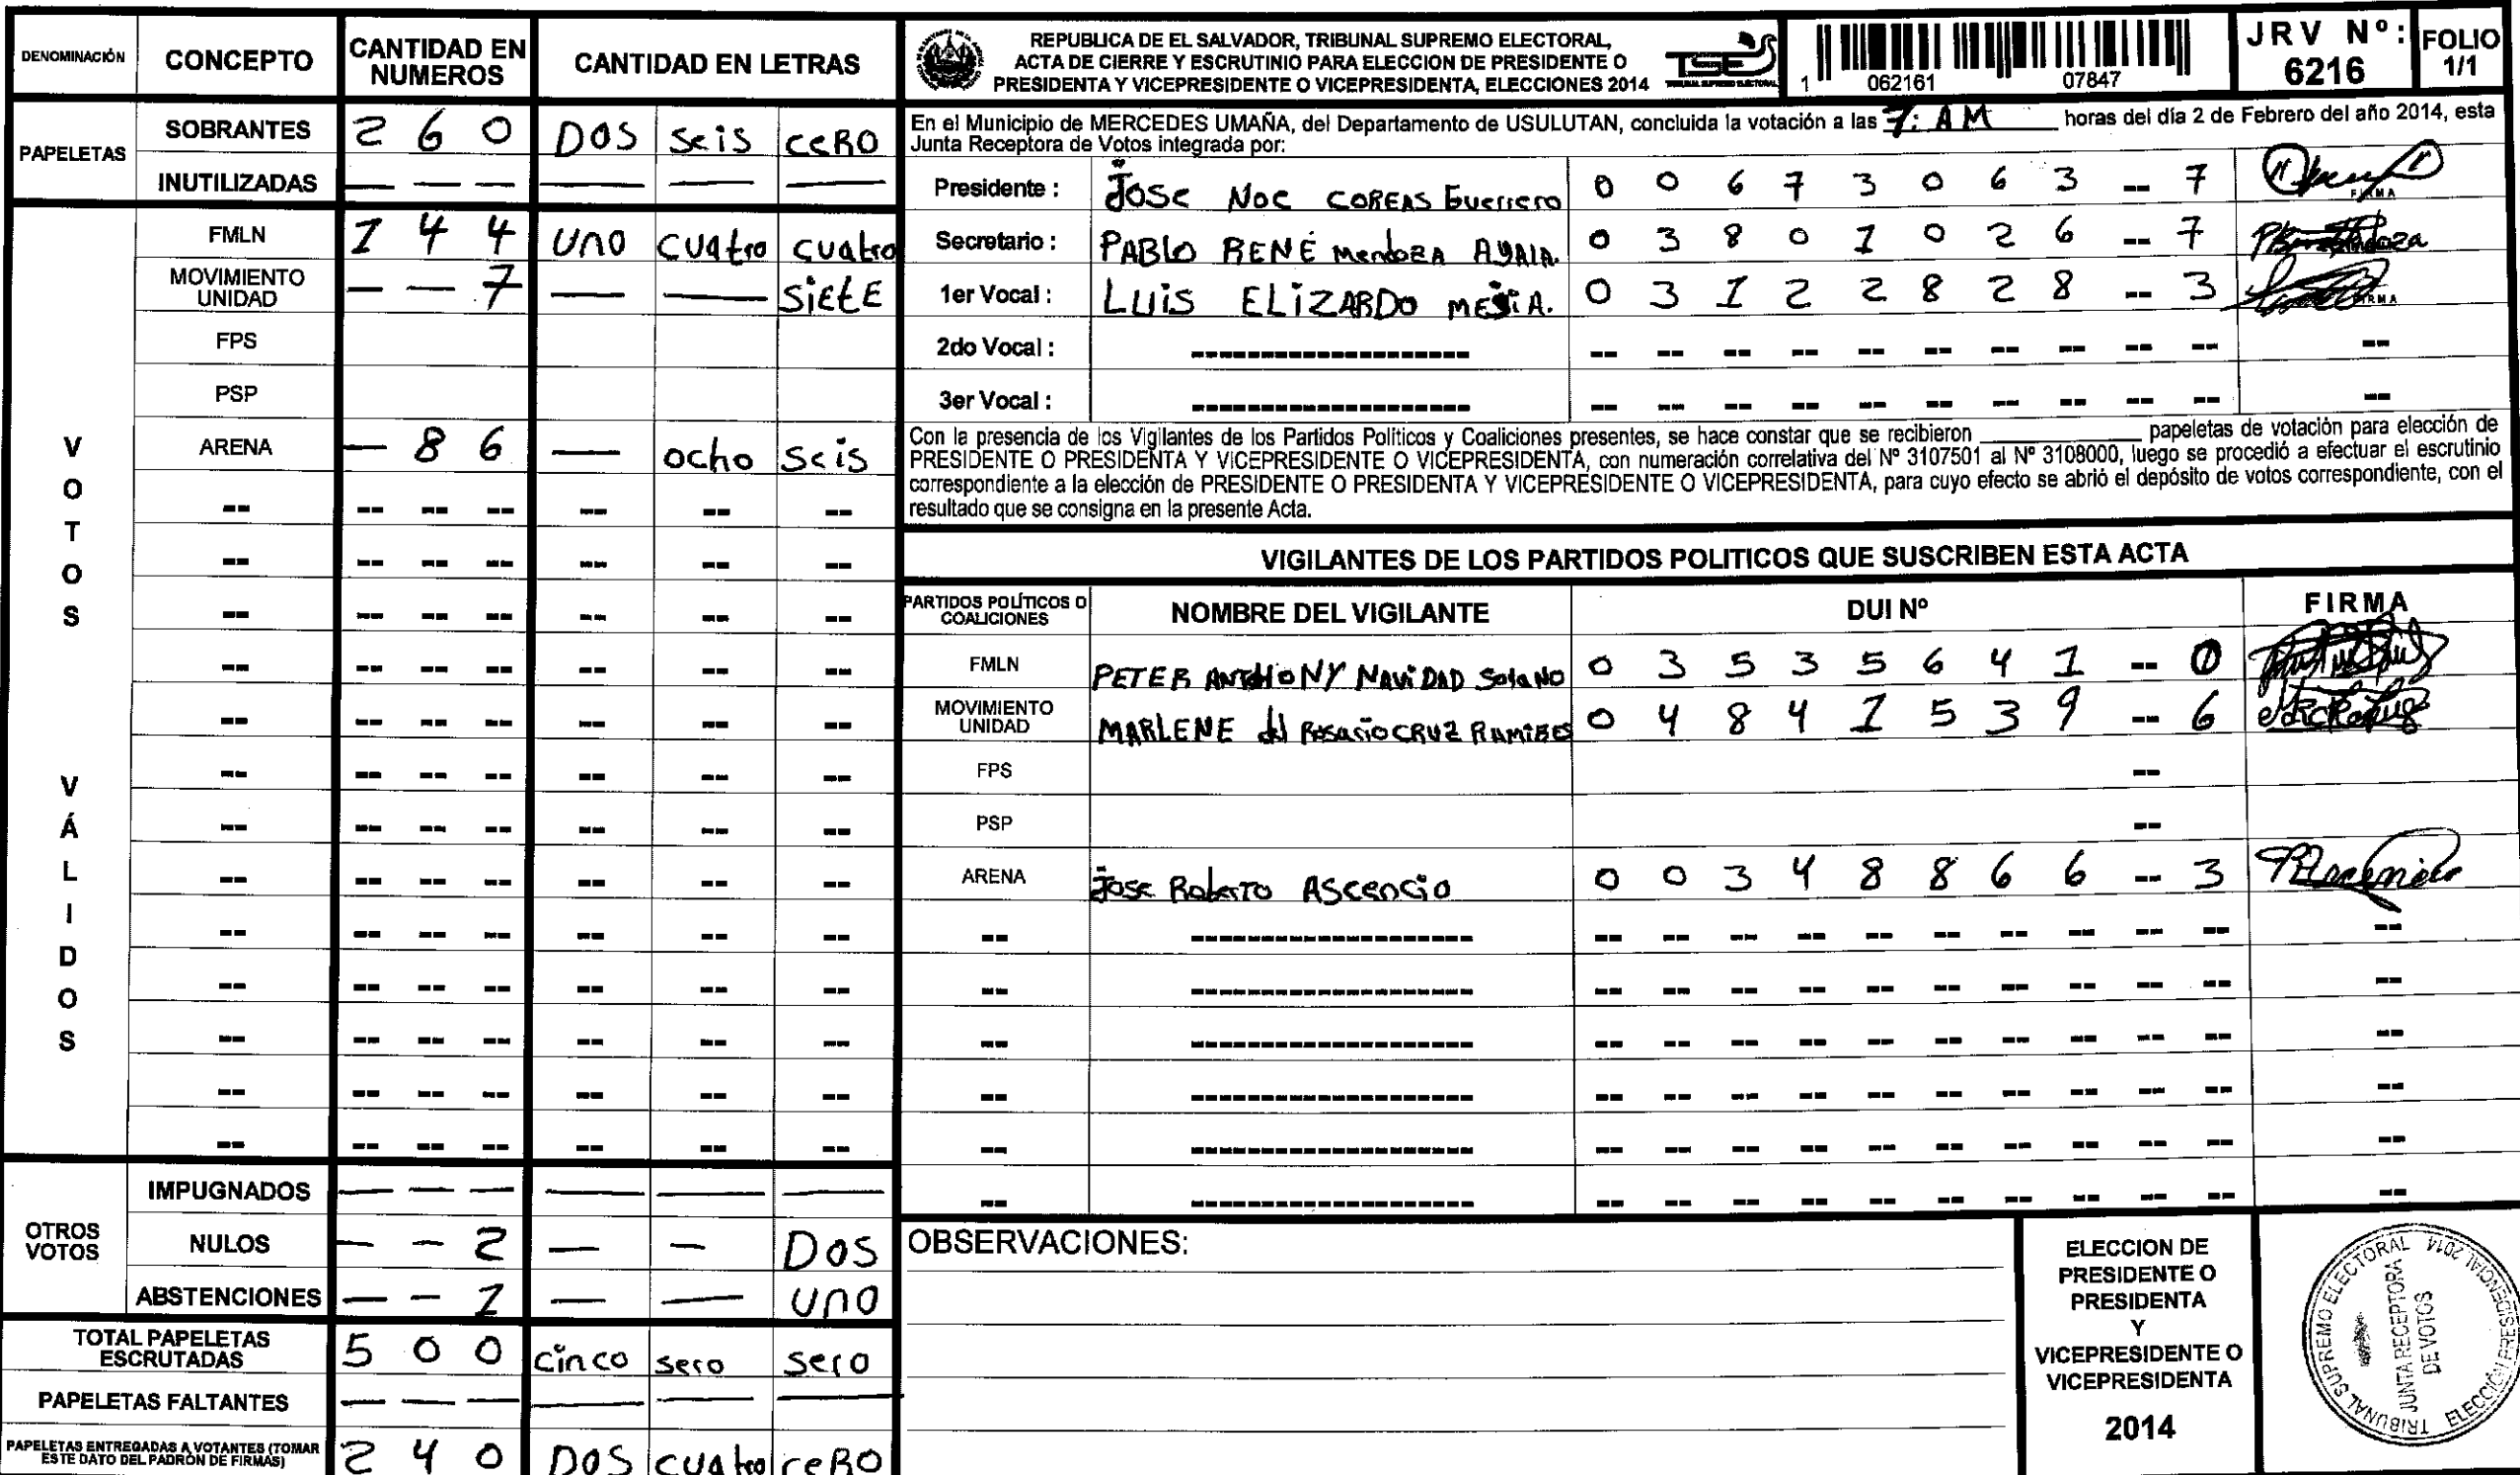 DENOMINACIÓN CONCEPTO CANTIDAD EN NUMEROS CANTIDAD EN LETRAS
PAPELETAS
SOBRANTES 2 6 0 DOS seis ceRO
INUTILIZADAS — — — — — —
VOTOS VÁLIDOS
FMLN 1 4 4 uno cuatro cuatro
MOVIMIENTO UNIDAD — — 7 — — SiEtE
FPS
PSP
ARENA — 8 6 — ocho seis
-- -- -- -- -- -- --
-- -- -- -- -- -- --
-- -- -- -- -- -- --
-- -- -- -- -- -- --
-- -- -- -- -- -- --
-- -- -- -- -- -- --
-- -- -- -- -- -- --
-- -- -- -- -- -- --
-- -- -- -- -- -- --
-- -- -- -- -- -- --
-- -- -- -- -- -- --
-- -- -- -- -- -- --
-- -- -- -- -- -- --
OTROS VOTOS
IMPUGNADOS — — — — — —
NULOS — — 2 — — DOS
ABSTENCIONES — — 1 — — uno
TOTAL PAPELETAS ESCRUTADAS 5 0 0 cinco sero sero
PAPELETAS FALTANTES — — — — — —
PAPELETAS ENTREGADAS A VOTANTES (TOMAR ESTE DATO DEL PADRÓN DE FIRMAS) 2 4 0 DOS cuatro ceRO
REPUBLICA DE EL SALVADOR, TRIBUNAL SUPREMO ELECTORAL,
ACTA DE CIERRE Y ESCRUTINIO PARA ELECCION DE PRESIDENTE O
PRESIDENTA Y VICEPRESIDENTE O VICEPRESIDENTA, ELECCIONES 2014
TSE
TRIBUNAL SUPREMO ELECTORAL
1 062161 07847
JRV Nº: 6216
FOLIO 1/1
En el Municipio de MERCEDES UMAÑA, del Departamento de USULUTAN, concluida la votación a las 7: AM horas del día 2 de Febrero del año 2014, esta
Junta Receptora de Votos integrada por:
Presidente : Jose Noe COREAS Guerrero 0 0 6 7 3 0 6 3 -- 7 FIRMA
Secretario : PABLO RENÉ MendozA AyAlA. 0 3 8 0 1 0 2 6 -- 7
1er Vocal : LUiS ELiZARDO MEjiA. 0 3 1 2 2 8 2 8 -- 3 FIRMA
2do Vocal : -------------------- -- -- -- -- -- -- -- -- -- -- --
3er Vocal : -------------------- -- -- -- -- -- -- -- -- -- -- --
Con la presencia de los Vigilantes de los Partidos Políticos y Coaliciones presentes, se hace constar que se recibieron ____________ papeletas de votación para elección de
PRESIDENTE O PRESIDENTA Y VICEPRESIDENTE O VICEPRESIDENTA, con numeración correlativa del Nº 3107501 al Nº 3108000, luego se procedió a efectuar el escrutinio
correspondiente a la elección de PRESIDENTE O PRESIDENTA Y VICEPRESIDENTE O VICEPRESIDENTA, para cuyo efecto se abrió el depósito de votos correspondiente, con el
resultado que se consigna en la presente Acta.
VIGILANTES DE LOS PARTIDOS POLITICOS QUE SUSCRIBEN ESTA ACTA
PARTIDOS POLÍTICOS O COALICIONES NOMBRE DEL VIGILANTE DUI Nº FIRMA
FMLN PETER ANTHONY NAViDAD Solano 0 3 5 3 5 6 4 1 -- 0
MOVIMIENTO UNIDAD MARLENE del Rosario CRUZ RAMiRES 0 4 8 4 1 5 3 9 -- 6
FPS --
PSP --
ARENA Jose Roberto Ascencio 0 0 3 4 8 8 6 6 -- 3
-- -------------------- -- -- -- -- -- -- -- -- -- -- --
-- -------------------- -- -- -- -- -- -- -- -- -- -- --
-- -------------------- -- -- -- -- -- -- -- -- -- -- --
-- -------------------- -- -- -- -- -- -- -- -- -- -- --
-- -------------------- -- -- -- -- -- -- -- -- -- -- --
-- -------------------- -- -- -- -- -- -- -- -- -- -- --
OBSERVACIONES:
ELECCION DE
PRESIDENTE O
PRESIDENTA
Y
VICEPRESIDENTE O
VICEPRESIDENTA
2014
TRIBUNAL SUPREMO ELECTORAL
JUNTA RECEPTORA
DE VOTOS
ELECCIÓN PRESIDENCIAL 2014